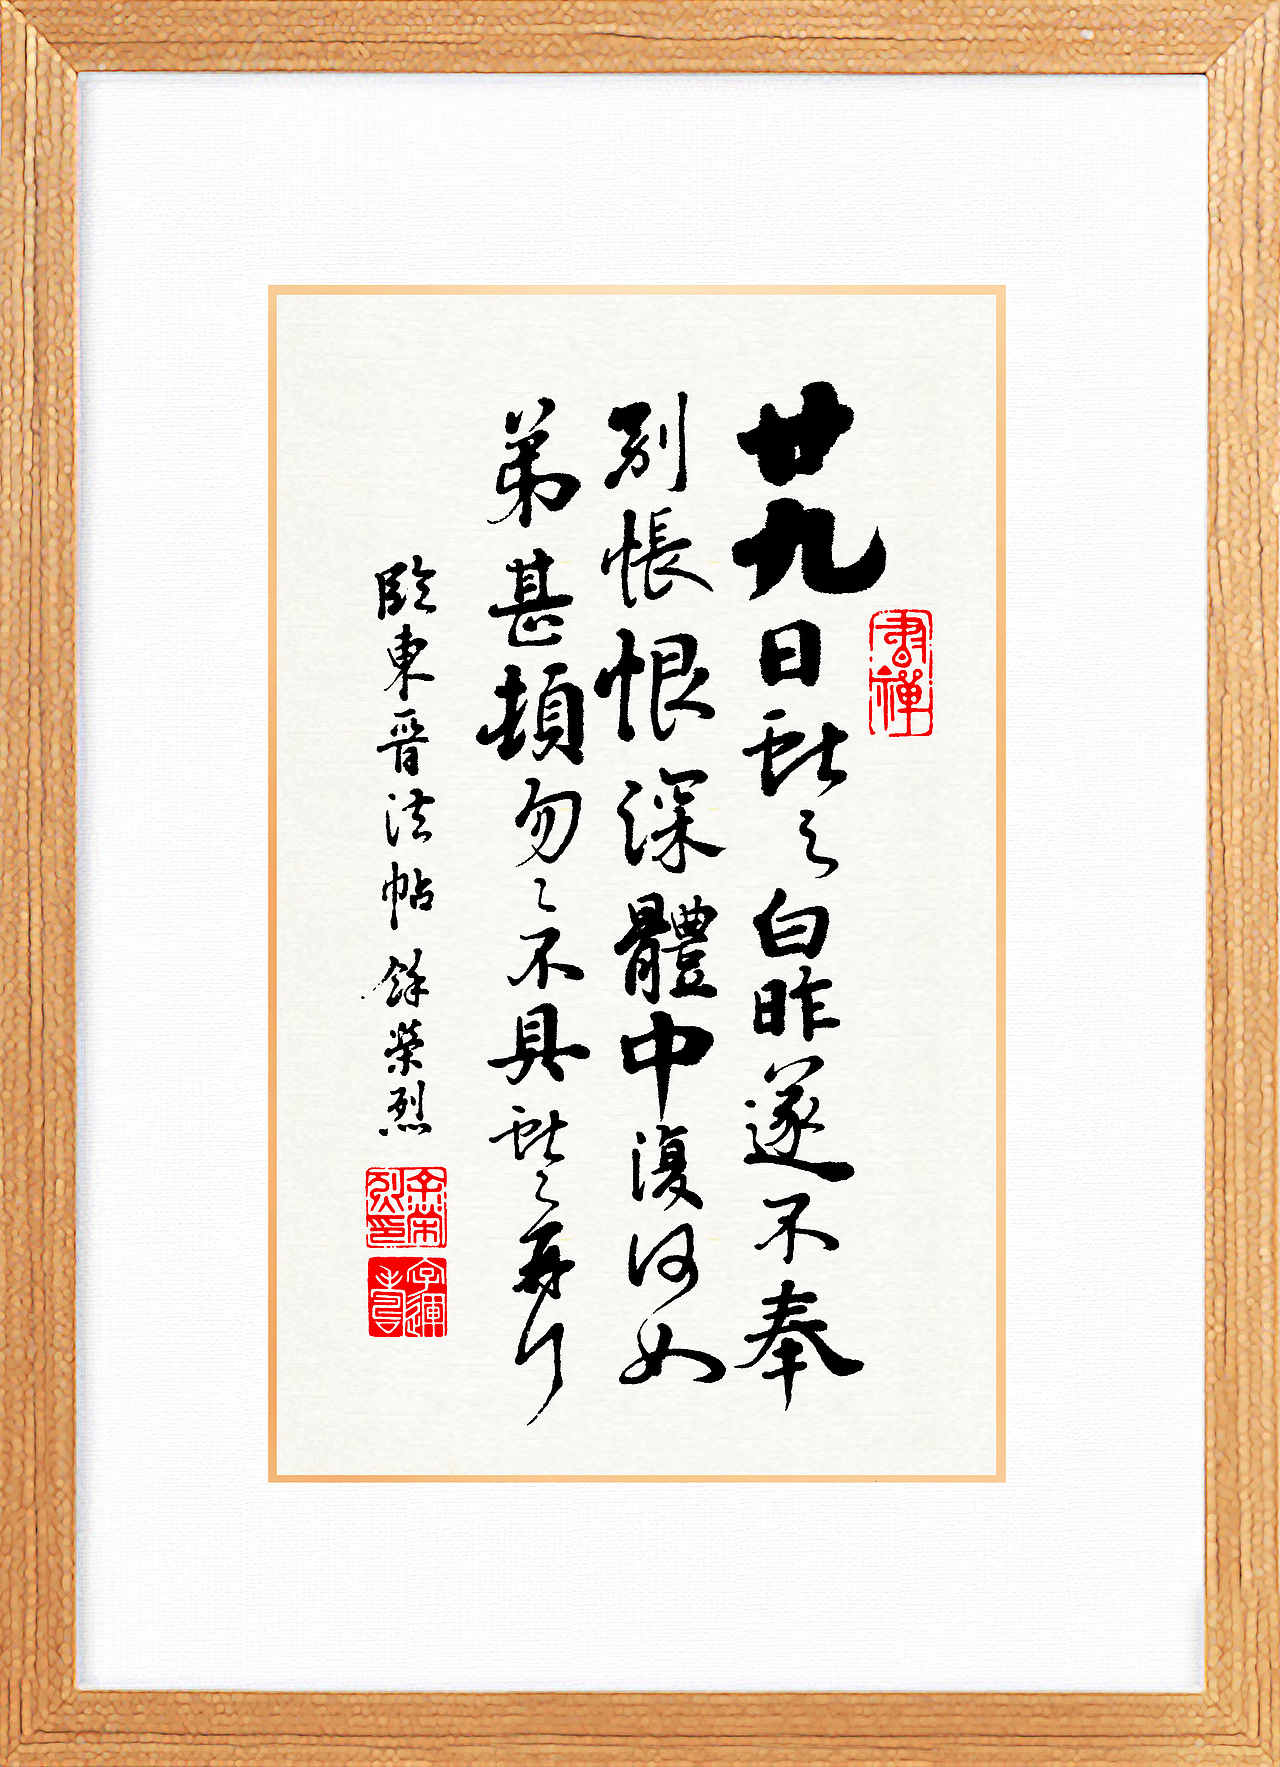 廿九日獻之白昨遂不奉
別悵恨深體中復何如
弟甚頓勿〻不具獻之再拜
臨東晉法帖 餘榮烈
書禪
余榮烈印